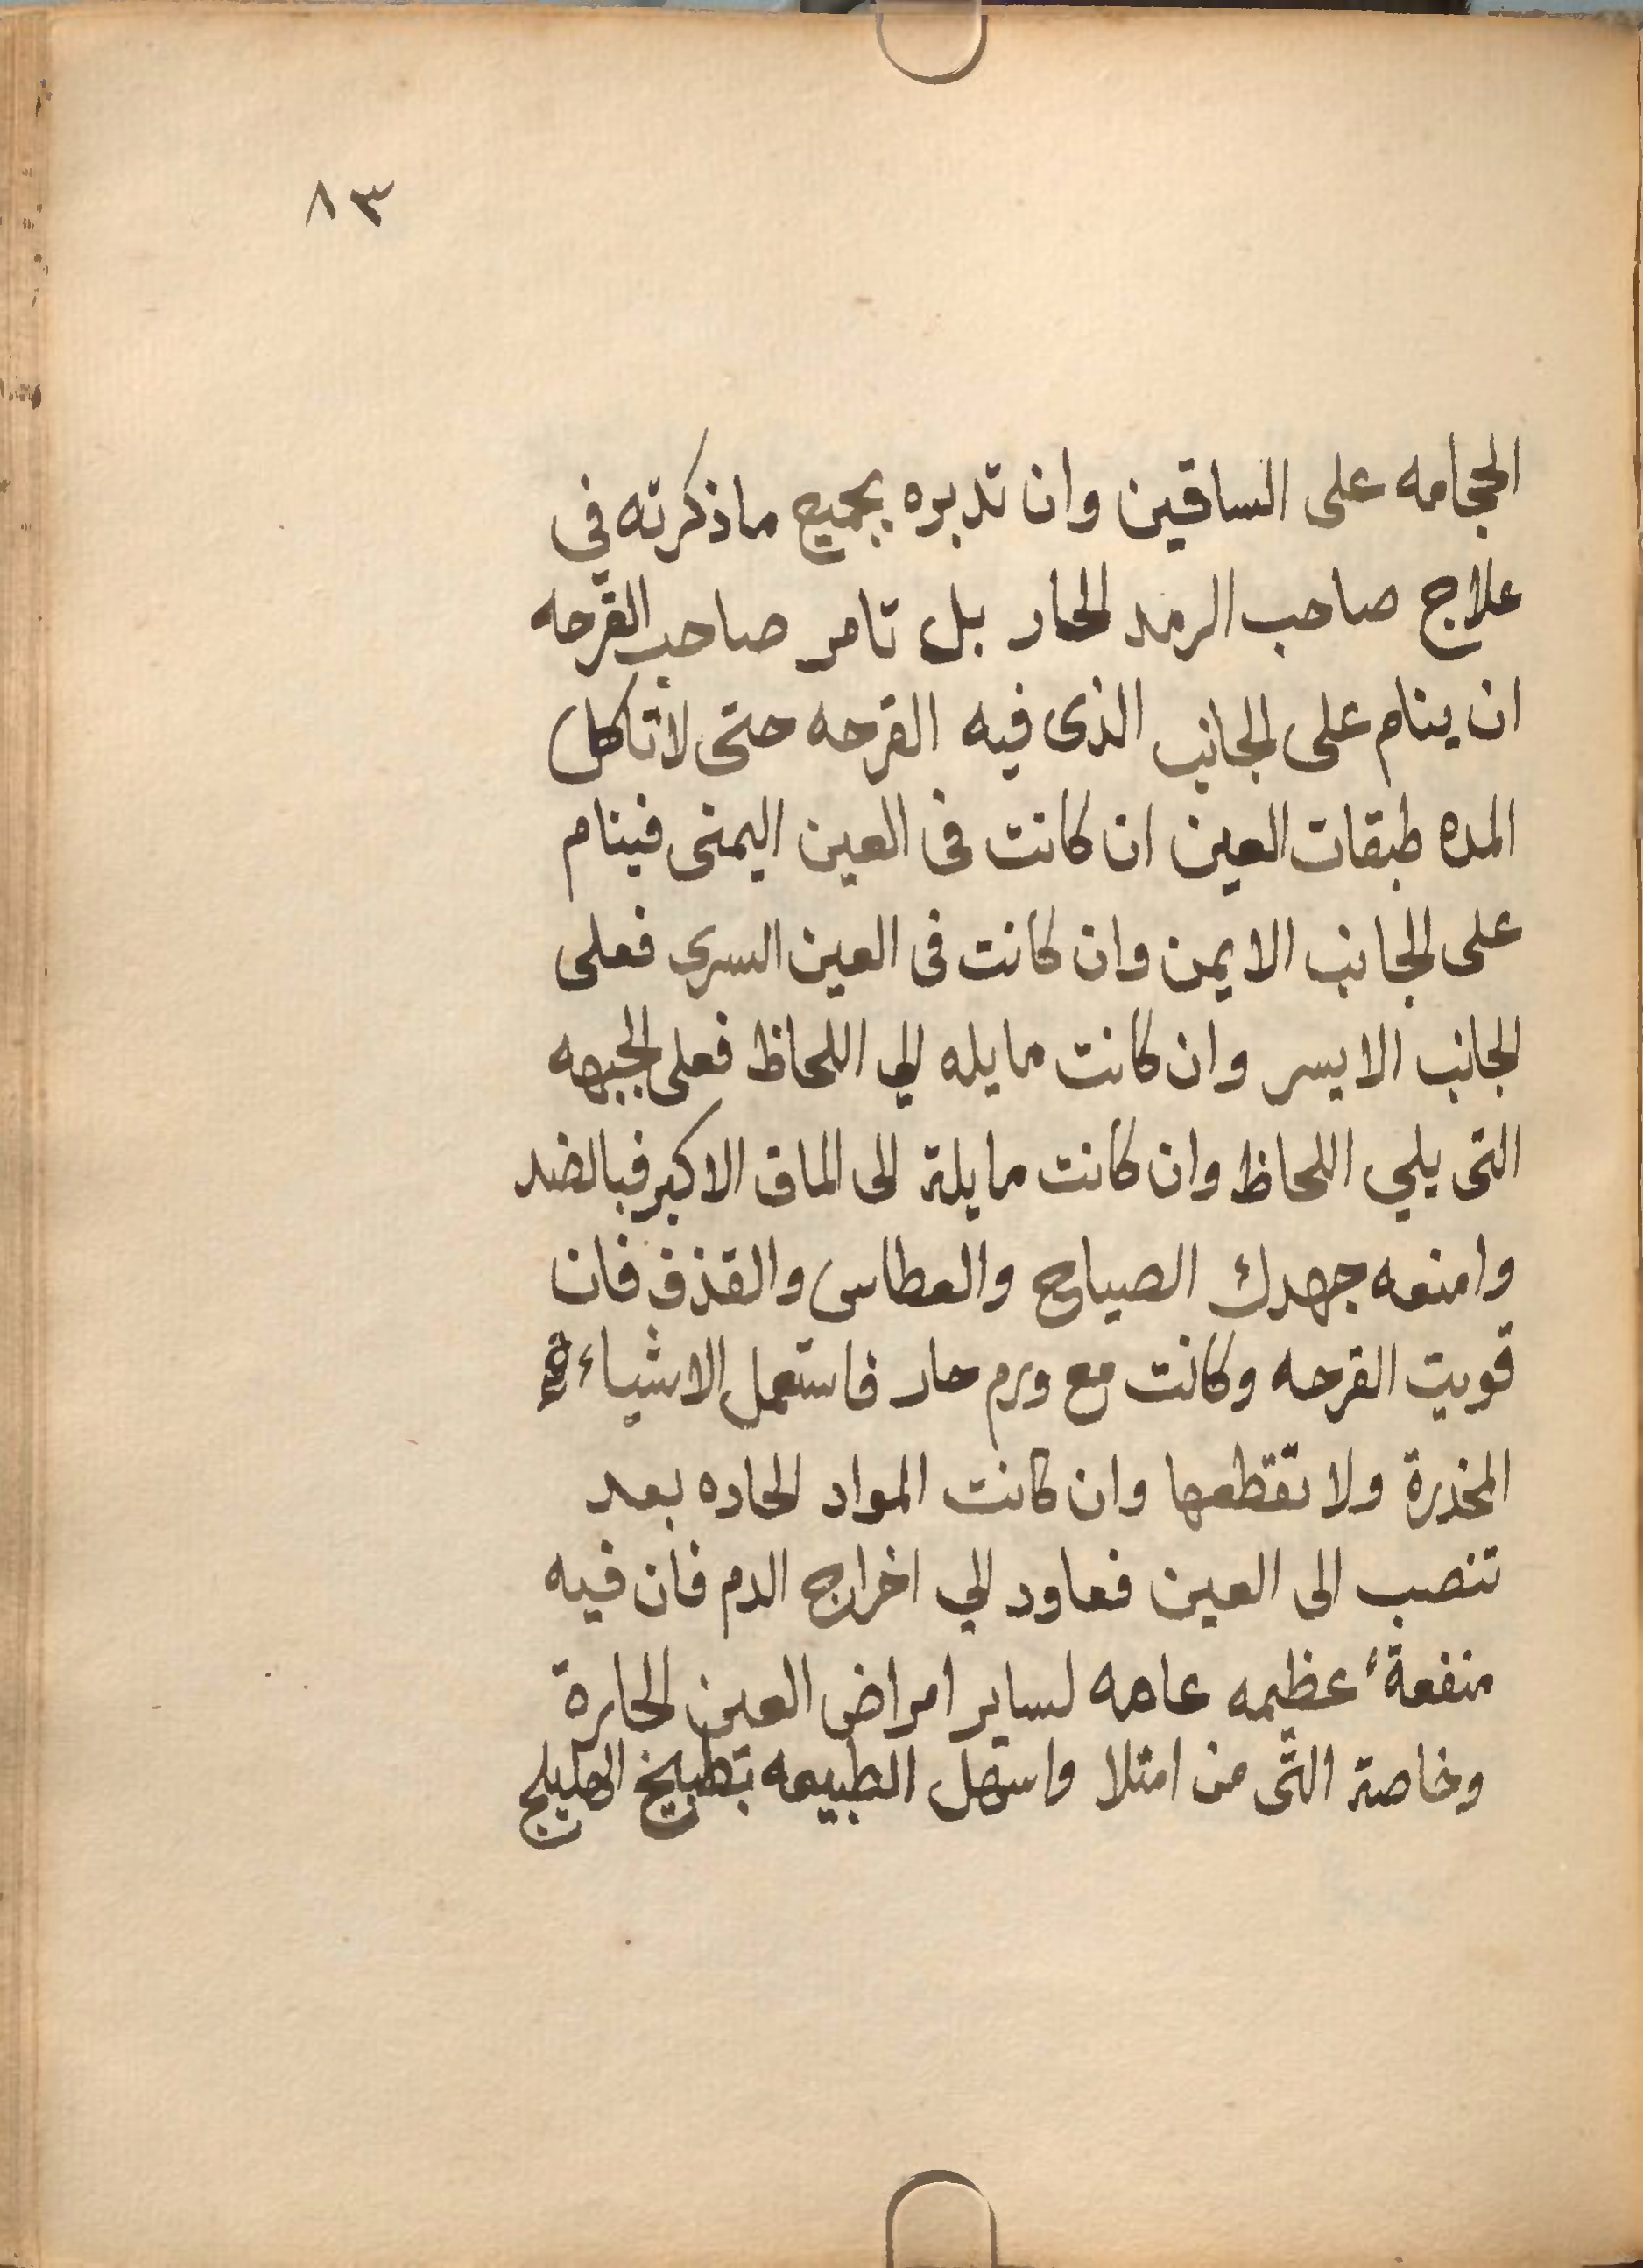 ٨٣
الحجامه على الساقين وان تدبره بجميع ماذكرته في
علاج صاحب الرمد الحار بل تامر صاحب القرحه
ان ينام على الجانب الذى فيه القرحه حتى لاتاكل
المده طبقات العين ان كانت فى العين اليمنى فينام
على الجانب الايمن وان كانت فى العين السرى فعلى
الجانب الايسر وان كانت مايله الي اللحاظ فعلى الجبهه
التى يلي اللحاظ وان كانت مايلة الى الماق الاكبر فبالضد
وامنعه جهدك الصياح والعطاس والقذف فان
قويت القرحه وكانت مع ورم حار فاستعمل الاشياء
المخدرة ولا تقطعها وان كانت المواد الحاده بعد
تنصب الى العين فعاود الي اخراج الدم فان فيه
منفعةً عظيمه عامه لساير امراض العين الحارة
وخاصة التى من امتلا واسهل الطبيعه بتطبيخ الهليلج